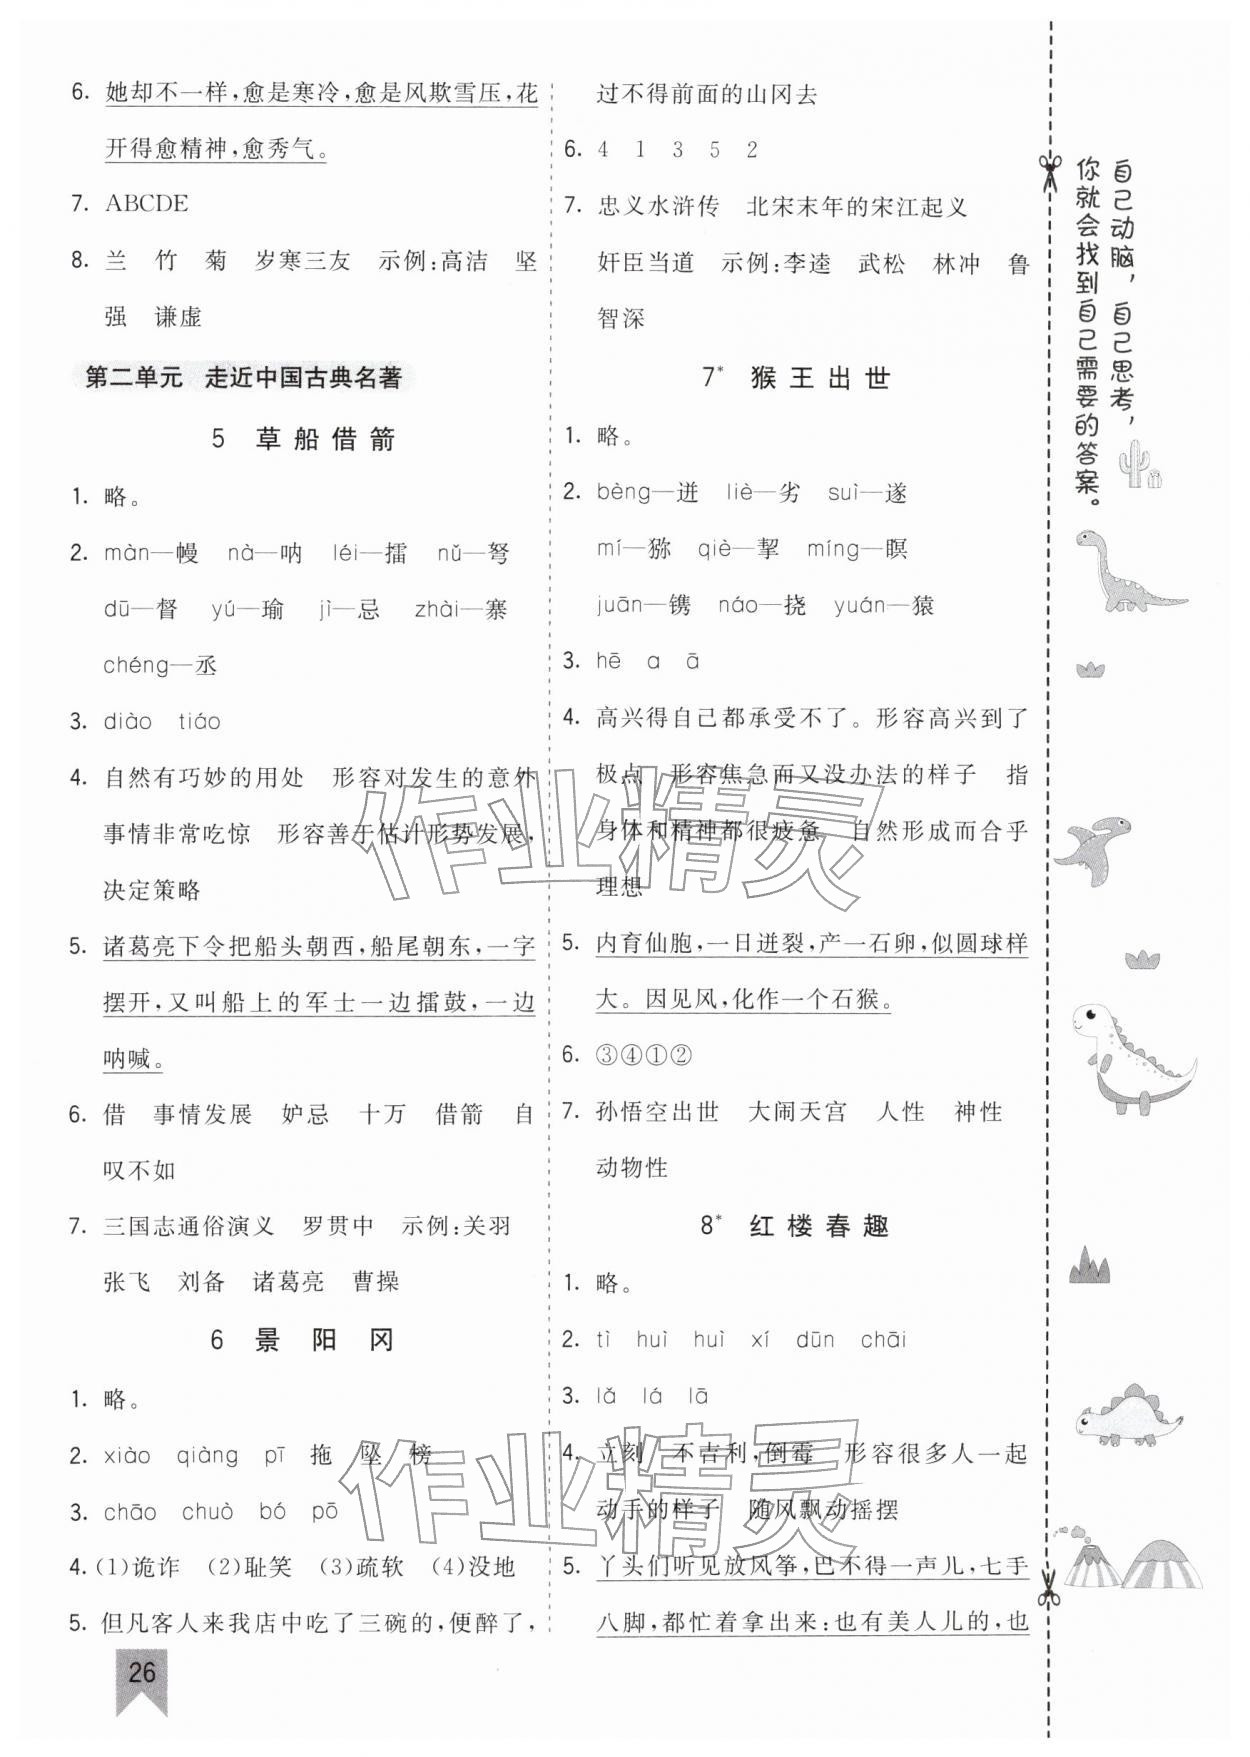 6. 她却不一样,愈是寒冷,愈是风欺雪压,花
开得愈精神,愈秀气。
7. ABCDE
8. 兰 竹 菊 岁寒三友 示例:高洁 坚
强 谦虚
第二单元 走近中国古典名著
5 草船借箭
1. 略。
2. màn—幔 nà—呐 léi—擂 nǔ—弩
dū—督 yú—瑜 jì—忌 zhài—寨
chéng—丞
3. diào tiáo
4. 自然有巧妙的用处 形容对发生的意外
事情非常吃惊 形容善于估计形势发展,
决定策略
5. 诸葛亮下令把船头朝西,船尾朝东,一字
摆开,又叫船上的军士一边擂鼓,一边
呐喊。
6. 借 事情发展 妒忌 十万 借箭 自
叹不如
7. 三国志通俗演义 罗贯中 示例:关羽
张飞 刘备 诸葛亮 曹操
6 景阳冈
1. 略。
2. xiào qiàng pī 拖 坠 榜
3. chāo chuò bó pō
4. (1)诡诈 (2)耻笑 (3)疏软 (4)没地
5. 但凡客人来我店中吃了三碗的,便醉了,
26
过不得前面的山冈去
6. 4 1 3 5 2
7. 忠义水浒传 北宋末年的宋江起义
奸臣当道 示例:李逵 武松 林冲 鲁
智深
7* 猴王出世
1. 略。
2. bèng—迸 liè—劣 suì—遂
mí—猕 qiè—挈 míng—瞑
juān—镌 náo—挠 yuán—猿
3. hē ɑ ā
4. 高兴得自己都承受不了。形容高兴到了
极点 形容焦急而又没办法的样子 指
身体和精神都很疲惫 自然形成而合乎
理想
5. 内育仙胞,一日迸裂,产一石卵,似圆球样
大。因见风,化作一个石猴。
6. ③④①②
7. 孙悟空出世 大闹天宫 人性 神性
动物性
8* 红楼春趣
1. 略。
2. tì huì huì xí dūn chāi
3. lǎ lá lā
4. 立刻 不吉利,倒霉 形容很多人一起
动手的样子 随风飘动摇摆
5. 丫头们听见放风筝,巴不得一声儿,七手
八脚,都忙着拿出来:也有美人儿的,也
自己动脑,自己思考,
你就会找到自己需要的答案。
作业精灵
作业精灵